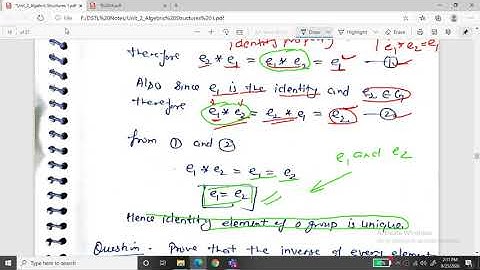 Unit_2_Algebric Structures 1.pdf
F:/DSTL%20Notes/Unit_2_Algebric%20Structures%20I.pdf
of 21
(identity property)
therefore e2 * e1 = e1 * e2 = e1 — ①
e1*e2=e1
Also since e1 is the identity and e2 ∈ G
therefore
e1 * e2 = e2 * e1 = e2 — ②
from ① and ②
e1 and e2
e1 * e2 = e1 = e2
e1 = e2
Hence identity element of a group is unique.
Activate Windows
Question - Prove that the inverse of every element
Type here to search
2:11 PM
9/25/2020